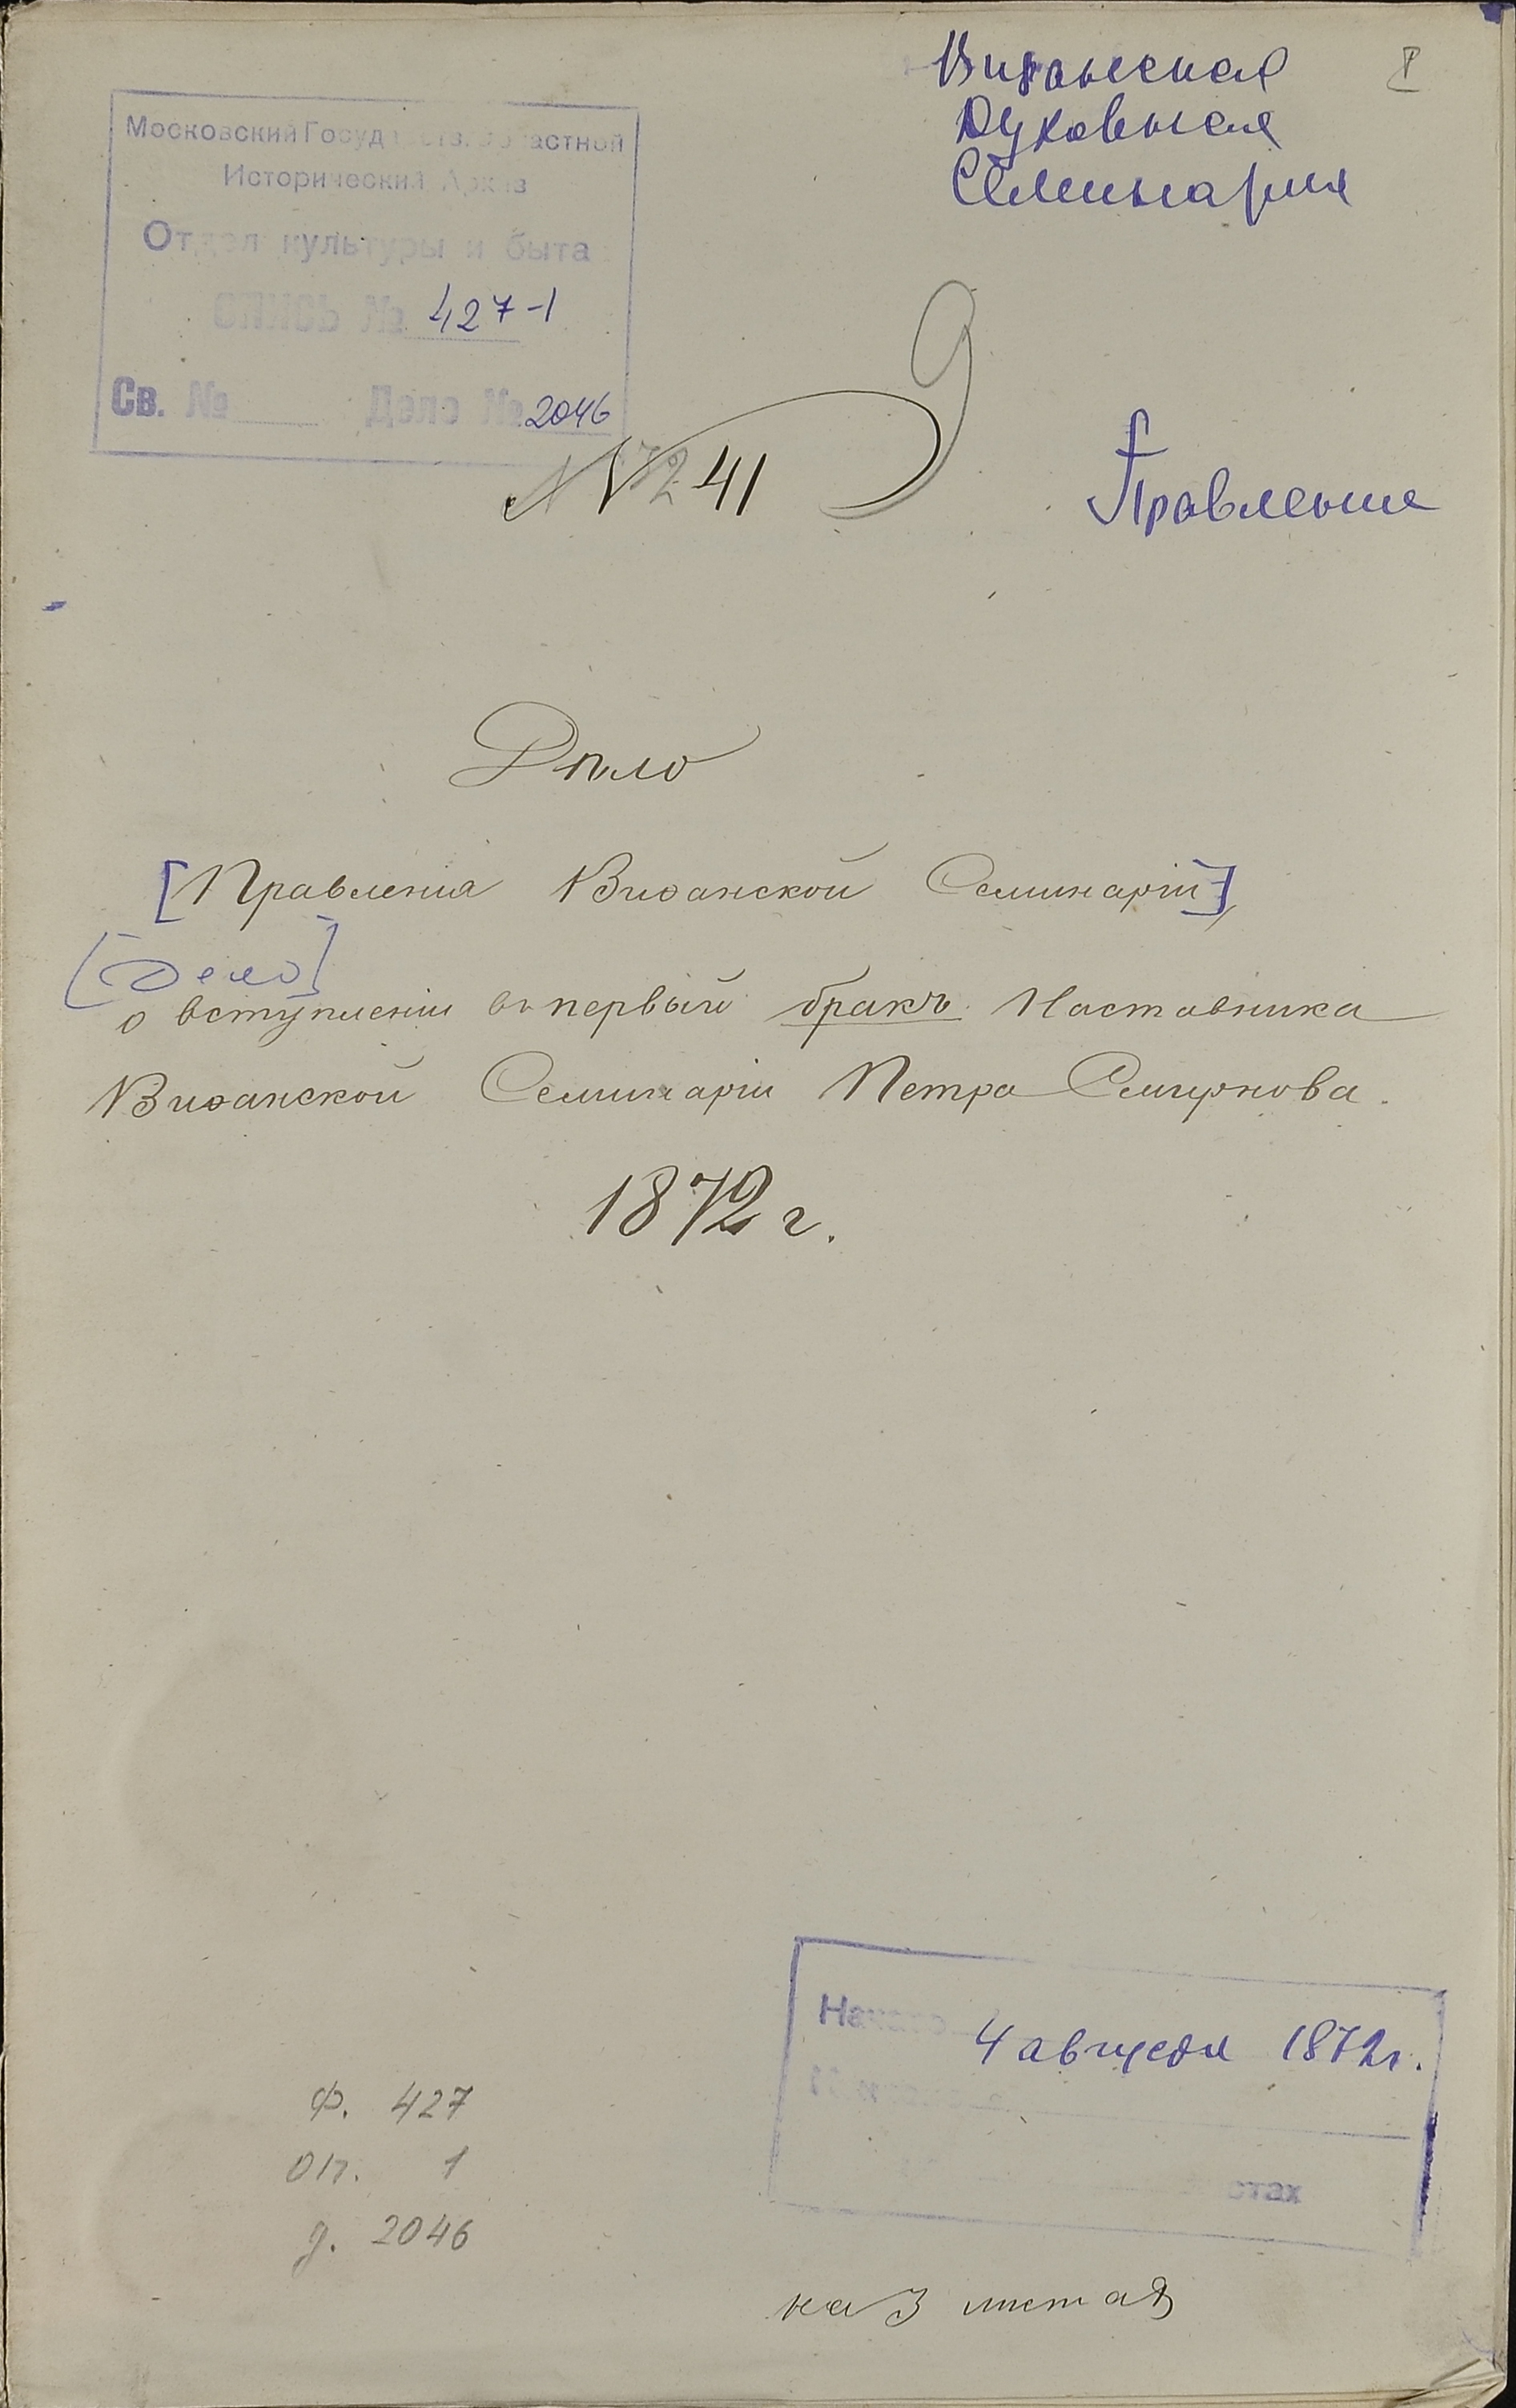 Вифанская
Духовная
Семинария
Московский Государств. Областной
Исторический Архив
Отдел культуры и быта
опись № 427-1
Св. № Дело № 2046
9
№ 41
Правление
Дѣло
[Правленія Виѳанской Семинаріи]
[Дело]
о вступленіи въ первый бракъ Наставника
Виѳанской Семинаріи Петра Смирнова.
1872 г.
Начато 4 августа 1872 г.
Ф. 427
оп. 1
д. 2046
на 3 листах